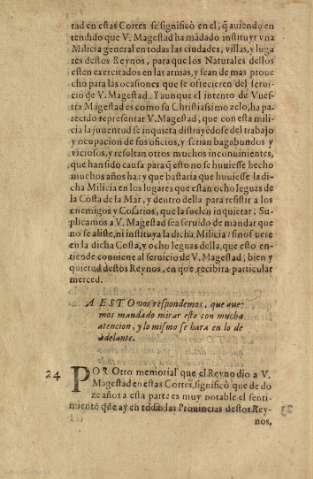 tad en estas Cortes se significò en el, q̃ auiendo en
tendido que V. Magestad ha mãdado instituyr vna
Milicia general en todas las ciudades, villas, y luga
res destos Reynos, para que los Naturales dellos
esten exercitados en las armas, y sean de mas proue
cho para las ocasiones que se ofrecieren del serui-
cio de V. Magestad. Y aunque el intento de Vues-
tra Magestad es como su Christianissimo zelo, ha pa-
recido representar V. Magestad, que con esta mili-
cia la juuentud se inquieta distrayẽdose del trabajo
y ocupacion de sus oficios, y serian bagabundos y
viciosos, y resultan otros muchos inconuinientes,
que han sido causa para q̃ esto no se huuiesse hecho
muchos años ha: y que bastaria que huuiesse la di-
cha Milicia en los lugares que estan ocho leguas de
la Costa de la Mar, y dentro della para resistir a los
enemigos y Cosarios, que la suelen inquietar; Su-
plicamos a V. Magestad sea seruido de mandar que
no se aliste, ni instituya la dicha Milicia, sino fuere
en la dicha Costa, y ocho leguas della, que esto en-
tiende conuiene al seruicio de V. Magestad, bien y
quietud destos Reynos, en que recibira particular
merced.
A ESTO vos respondemos, que aue-
mos mandado mirar esto con mucha
atencion, y lo mismo se hara en lo de
adelante.
24 POR Otro memorial que el Reyno dio a V.
Magestad en estas Cortes, significò que de do-
ze años a esta parte es muy notable el senti-
miento que ay en todas las Prouincias destos Rey-
nos,